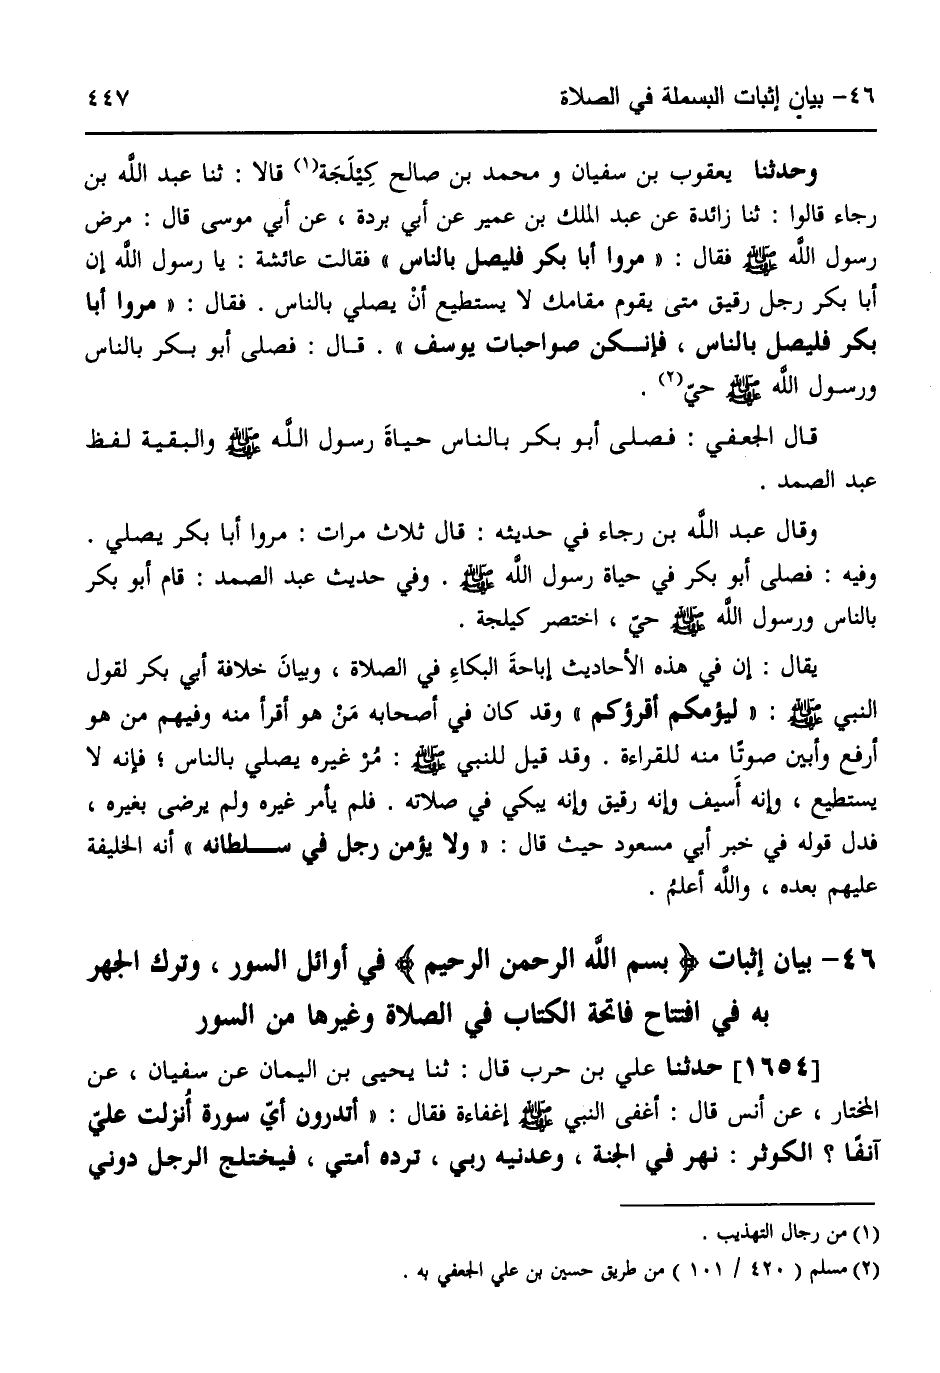 ٤٦- بيان إثبات البسملة في الصلاة ٤٤٧
وحدثنا يعقوب بن سفيان و محمد بن صالح كِيْلَجَة(١) قالا : ثنا عبد اللَّه بن
رجاء قالوا : ثنا زائدة عن عبد الملك بن عمير عن أبي بردة ، عن أبي موسى قال : مرض
رسول اللَّه ﷺ فقال : « مروا أبا بكر فليصل بالناس » فقالت عائشة : يا رسول اللَّه إن
أبا بكر رجل رقيق متى يقوم مقامك لا يستطيع أنْ يصلي بالناس . فقال : « مروا أبا
بكر فليصل بالناس ، فإنـكن صواحبات يوسف » . قـال : فصلى أبو بـكر بالناس
ورسول اللَّه ﷺ حيّ(٢) .
قال الجعفي : فصلى أبو بكر بالناس حياةَ رسول اللَّه ﷺ والبقية لفظ
عبد الصمد .
وقال عبد اللَّه بن رجاء في حديثه : قال ثلاث مرات : مروا أبا بكر يصلي .
وفيه : فصلى أبو بكر في حياة رسول اللَّه ﷺ . وفي حديث عبد الصمد : قام أبو بكر
بالناس ورسول اللَّه ﷺ حيّ ، اختصر كيلجة .
يقال : إن في هذه الأحاديث إباحةَ البكاءِ في الصلاة ، وبيانَ خلافة أبي بكر لقول
النبي ﷺ : « ليؤمكم أقرؤكم » وقد كان في أصحابه مَنْ هو أقرأ منه وفيهم من هو
أرفع وأبين صوتًا منه للقراءة . وقد قيل للنبي ﷺ : مُرْ غيره يصلي بالناس ؛ فإنه لا
يستطيع ، وإنه أَسيف وإنه رقيق وإنه يبكي في صلاته . فلم يأمر غيره ولم يرضى بغيره ،
فدل قوله في خبر أبي مسعود حيث قال : « ولا يؤمن رجل في سـلطانه » أنه الخليفة
عليهم بعده ، واللَّه أعلمُ .
٤٦- بيان إثبات ﴿ بسم اللَّه الرحمن الرحيم ﴾ في أوائل السور ، وترك الجهر
به في افتتاح فاتحة الكتاب في الصلاة وغيرها من السور
[١٦٥٤] حدثنا علي بن حرب قال : ثنا يحيى بن اليمان عن سفيان ، عن
المختار ، عن أنس قال : أغفى النبي ﷺ إغفاءة فقال : « أتدرون أيّ سورة أُنزلت عليّ
آنفًا ؟ الكوثر : نهر في الجنة ، وعدنيه ربي ، ترده أمتي ، فيختلج الرجل دوني
(١) من رجال التهذيب .
(٢) مسلم ( ٤٢٠ / ١٠١ ) من طريق حسين بن علي الجعفي به .